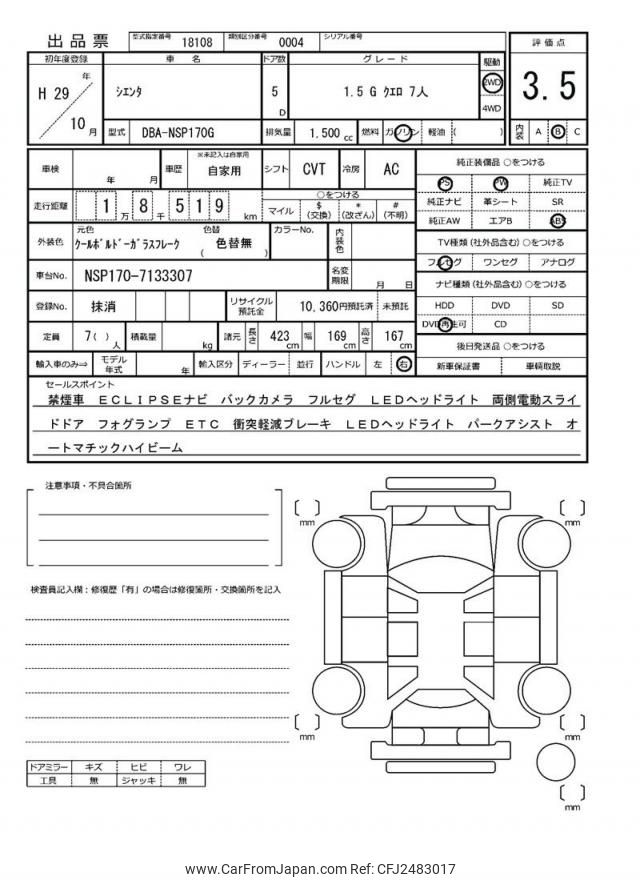 出品票 型式指定番号 18108 類別区分番号 0004 シリアル番号
評価点
3.5
内装 A B C
初年度登録 車名 ドア数 グレード 駆動
H 29 年 10 月
シエンタ 5 D 1.5 G クエロ 7人 2WD 4WD
型式 DBA-NSP170G 排気量 1,500 cc 燃料 ガソリン 軽油 ( )
車検 年 月 車歴 ※未記入は自家用 自家用 シフト CVT 冷房 AC
純正装備品 ○をつける
PS PW 純正TV
純正ナビ 革シート SR
純正AW エアB ABS
走行距離 1 万 8 千 5 1 9 km
○をつける
マイル $ (交換) * (改ざん) # (不明)
TV種類 (社外品含む) ○をつける
フルセグ ワンセグ アナログ
外装色 元色 クールボルドーガラスフレーク 色替 ( 色替無 ) カラーNo. 内装色
車台No. NSP170-7133307 名変期限 月 日
ナビ種類 (社外品含む) ○をつける
HDD DVD SD
DVD再生可 CD
登録No. 抹消 リサイクル預託金 10,360円預託済 未預託
定員 7( ) 人 積載量 kg 諸元 長さ 423 cm 幅 169 cm 高さ 167 cm
後日発送品 ○をつける
新車保証書 車輌取説
輸入車のみ⇒ モデル年式 年 輸入区分 ディーラー 並行 ハンドル 左 右
セールスポイント
禁煙車 ECLIPSEナビ バックカメラ フルセグ LEDヘッドライト 両側電動スライ
ドドア フォグランプ ETC 衝突軽減ブレーキ LEDヘッドライト パークアシスト オ
ートマチックハイビーム
注意事項・不具合箇所
検査員記入欄：修復歴「有」の場合は修復箇所・交換箇所を記入
mm
mm
mm
mm
mm
ドアミラー キズ ヒビ ワレ
工具 無 ジャッキ 無
www.CarFromJapan.com Ref: CFJ2483017